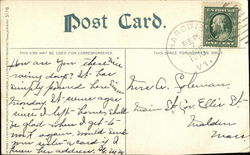 Post Card.
THIS SIDE MAY BE USED FOR CORRESPONDENCE.
THIS SIDE IS FOR THE ADDRESS
VT.
How are you these
rainy days? It has
simply poured here
Monday. It seems ages
since I left home. Shall
be glad when I get to
work again. would send
your sister a card if I
knew her address.
Mrs. A. Coleman,
Main St. Cor Ellis St
Malden
Mass